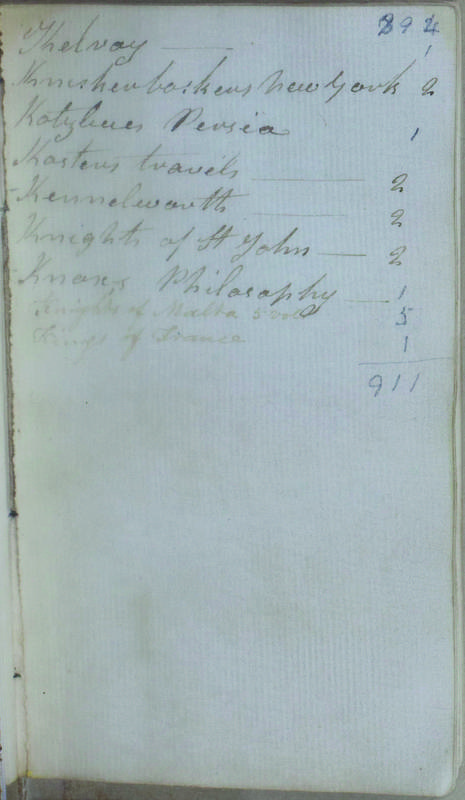 894
Kelroy 1
Knickerbockers New York 2
Kotzbues Persia 1
Kosters travels 2
Kennelworth 2
Knights of St John 2
Knoxs Philosophy 1
Knights of Malta 5 vols 5
Kings of France 1
911